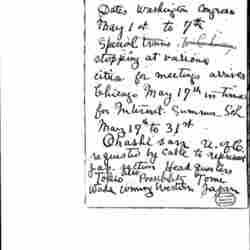 Dates Washington Congress
May 1st to 7th
Special trains
stopping at various
cities for meetings arrives
Chicago May 19th in time
for Internat. Summer Sch
May 19th to 31st.
Ohashi san U. of C.
requested by cable to represent
Jap. section Headquarters
Tokio Possibly Tomi
Wada coming Western Japan